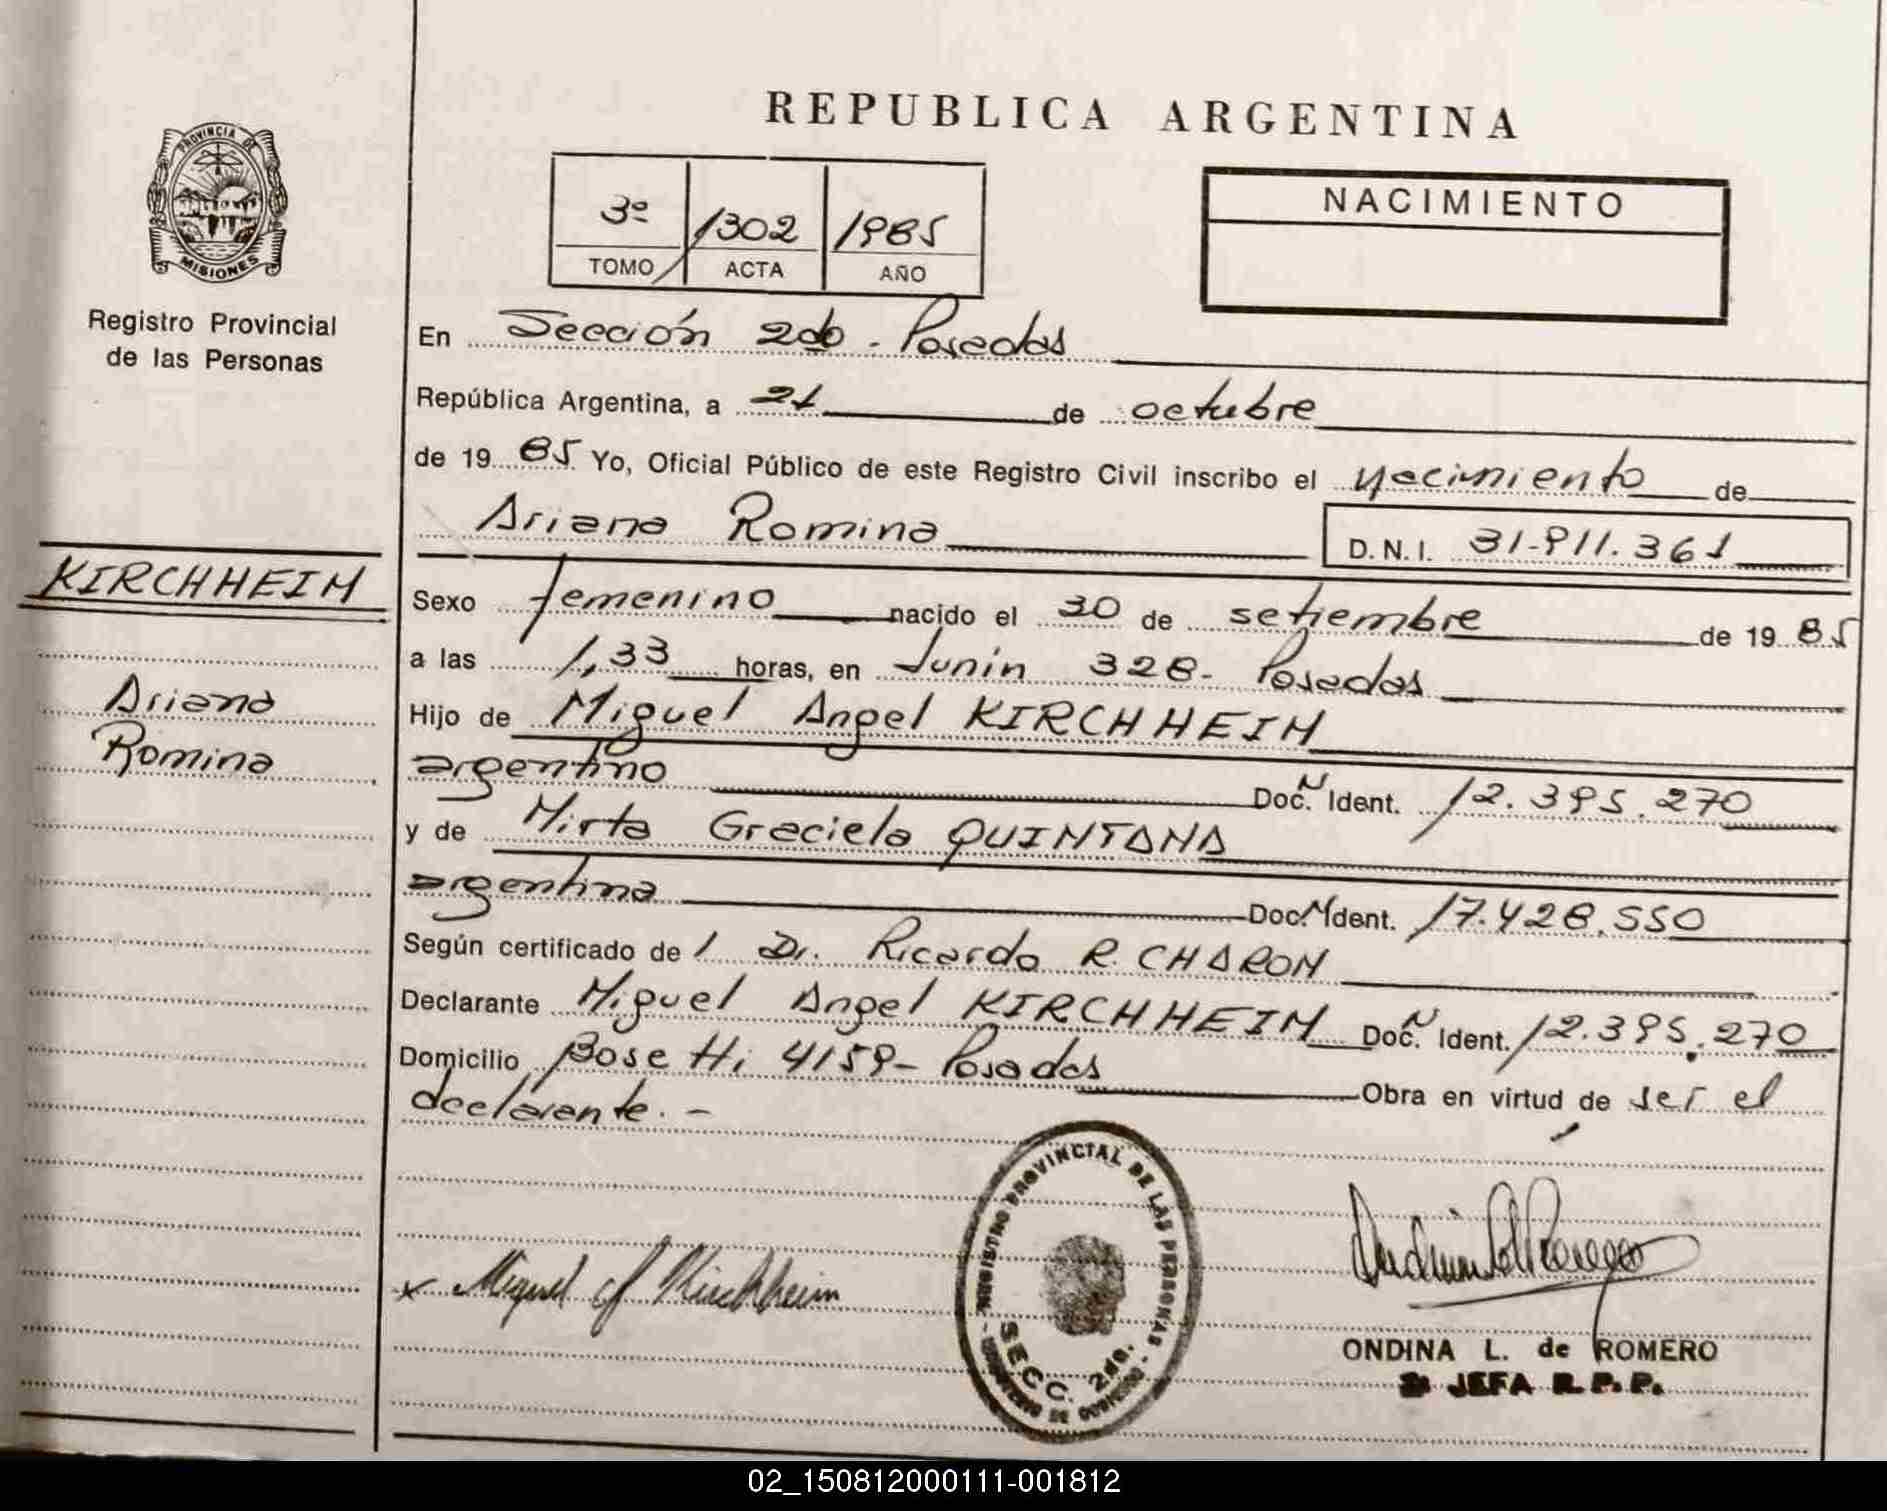 REPUBLICA ARGENTINA
PROVINCIA DE
MISIONES
Registro Provincial
de las Personas
3º 1302 1985
TOMO ACTA AÑO
NACIMIENTO
En Sección 2do - Posadas
República Argentina, a 21 de octubre
de 1985 Yo, Oficial Público de este Registro Civil inscribo el nacimiento de
Ariana Romina D.N.I. 31.911.361
KIRCHHEIM
Ariana
Romina
Sexo femenino nacido el 30 de setiembre de 1985
a las 1,33 horas, en Junin 328- Posadas
Hijo de Miguel Angel KIRCHHEIM
argentino Doc. N Ident. 12.395.270
y de Mirta Graciela QUINTANA
argentina Doc. N Ident. 17.428.550
Según certificado de l Dr. Ricardo R. CHARON
Declarante Miguel Angel KIRCHHEIM Doc. N Ident. 12.395.270
Domicilio Bosetti 4159- Posadas Obra en virtud de ser el
declarante. -
REGISTRO PROVINCIAL DE LAS PERSONAS
SECC. 2da.
MINISTERIO DE GOBIERNO
x Miguel A Kirchheim
ONDINA L. de ROMERO
JEFA R.P.P.
02_150812000111-001812